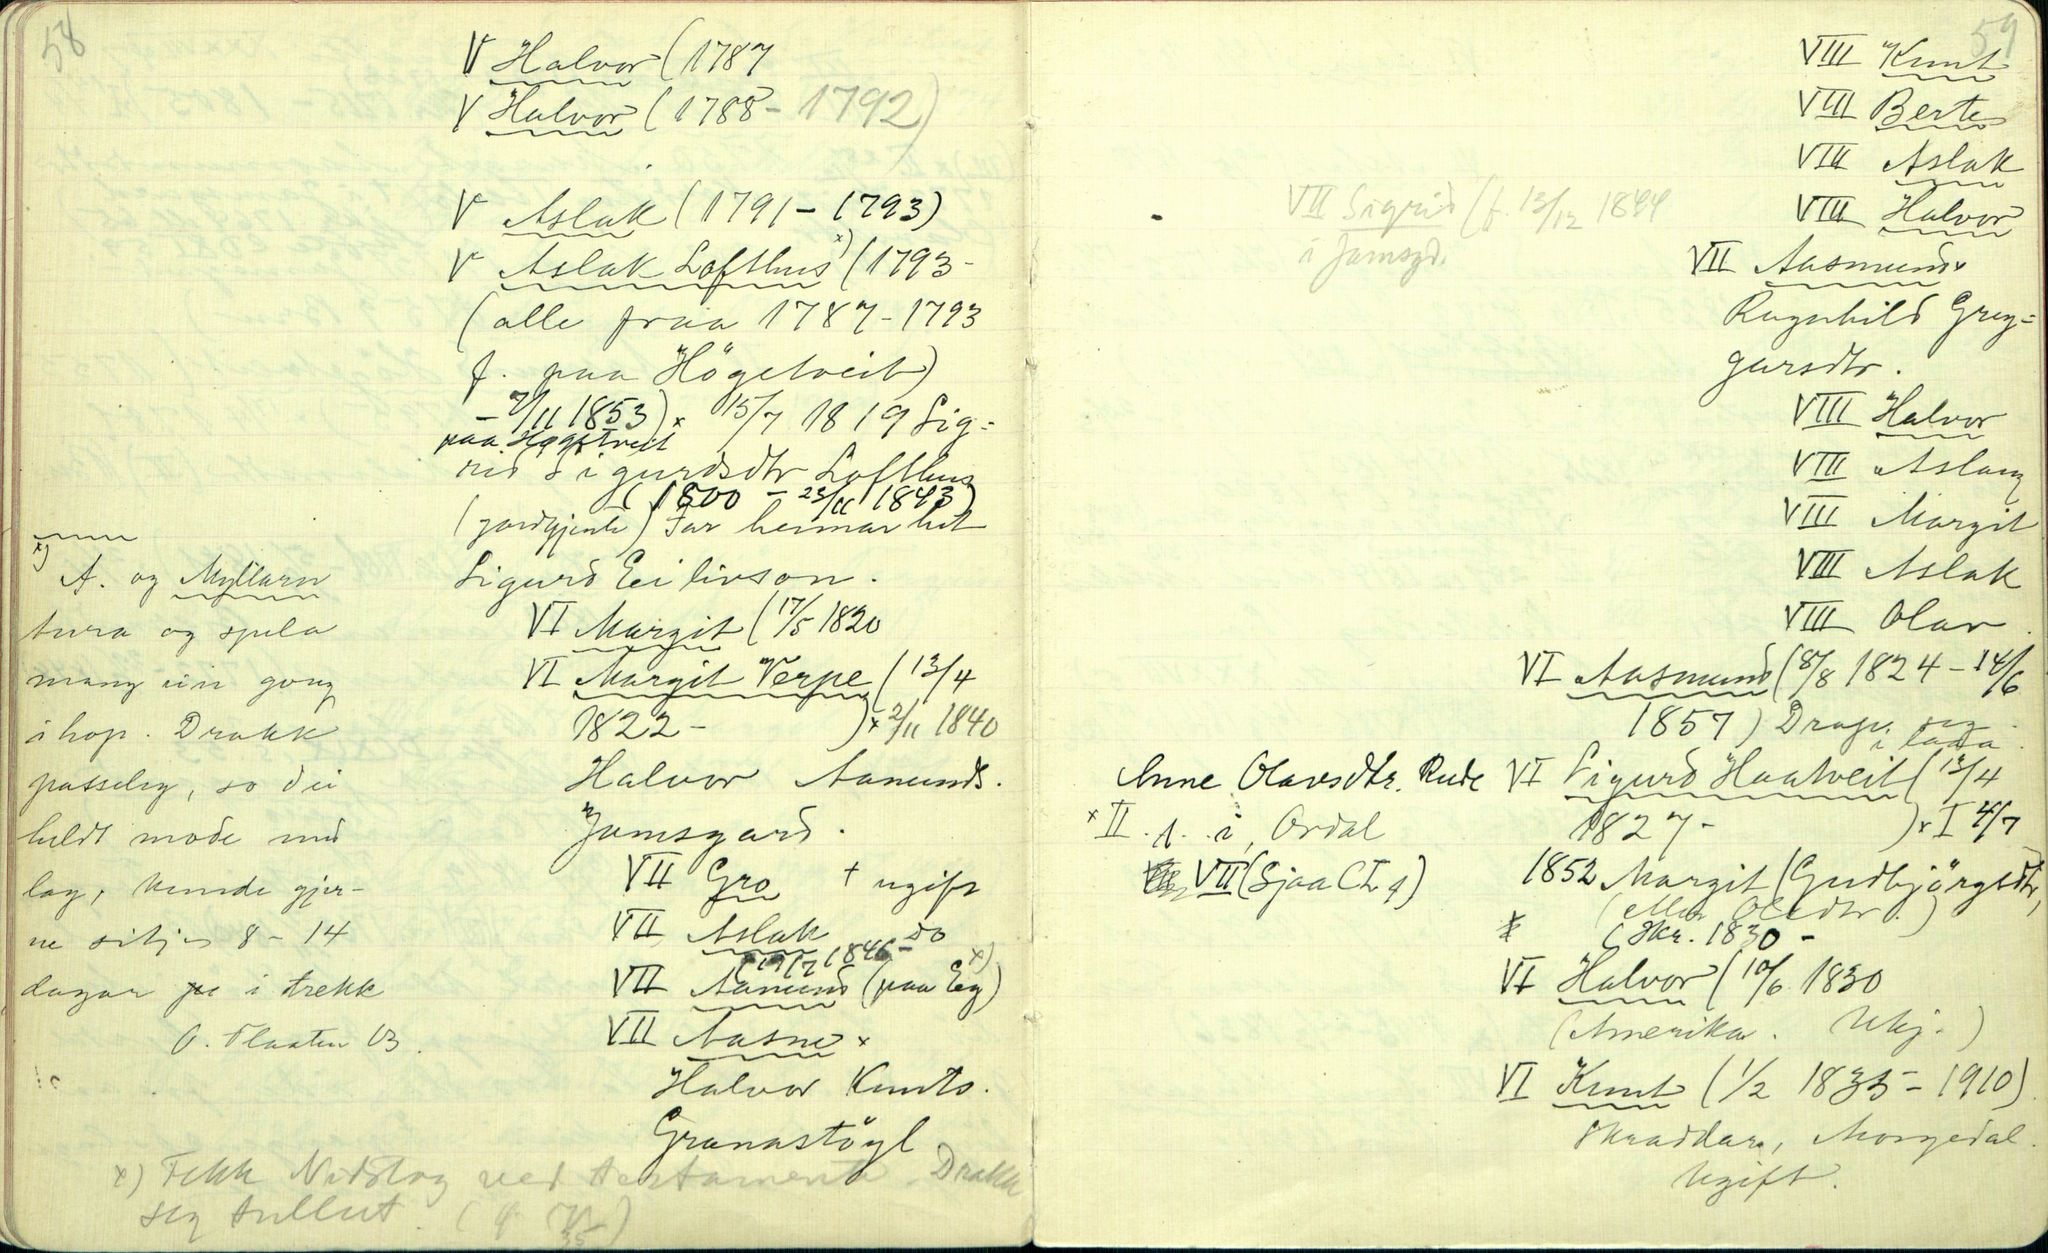 58
V Halvor (1787
V Halvor (1788 - 1792)
V Aslak (1791 - 1793)
V Aslak Lofthus x) (1793 -
(alle fraa 1787 - 1793
f. paa Högetveit)
- 7/11 1853) x 15/7 1819 Sig-
paa Høgetveit
rid Sigurdsdtr Lofthus
(1800 - 23/11 1843)
(gardgjente) Far hennar het
Sigurd Eilivson.
VI Margit (17/5 1820
VI Margit Verpe (13/4
1822 - ) x 2/11 1840
Halvor Aamunds.
Jamsgard.
VII Gro + ugift
VII Aslak do
(19/7 1846 -
VII Aamund (paa Eg) x)
VII Aasne x
Halvor Knuts.
Granastöyl
x)
A. og Myllarn
tura og spela
mang ein gong
i hop. Drakk
passeleg, so dei
heldt mode med
lag, kunde gjer-
ne sitja 8 - 14
dagar i trekk
O. Flaaten 03.
x) Fekk Nordstog ved testamente. Drakk
seg tullut.
59
VIII Knut
VIII Berte
VIII Aslak
VIII Halvor
VII Sigrid (f. 13/12 1844
i Jamsgd.
VII Aasmund x
Ragnhild Greg-
gursdtr.
VIII Halvor
VIII Aslaug
VIII Margit
VIII Aslak
VIII Olav
VI Aasmund (8/8 1824 - 14/6
1857) Drap seg
i lada.
VI Sigurd Haatveit (13/4
1827 - ) x I 4/7
1852 Margit (Gudbjörgsdtr,
(eller Olsdtr.)
(Skr. 1830 -
Anne Olavsdtr. Rude
x II . i Ordal
VII (Sjaa CI 9)
VI Halvor (10/6 1830
(Amerika. Ukj.)
VI Knut (1/2 1835 - 1910)
Skraddar, Morgedal.
Ugift.